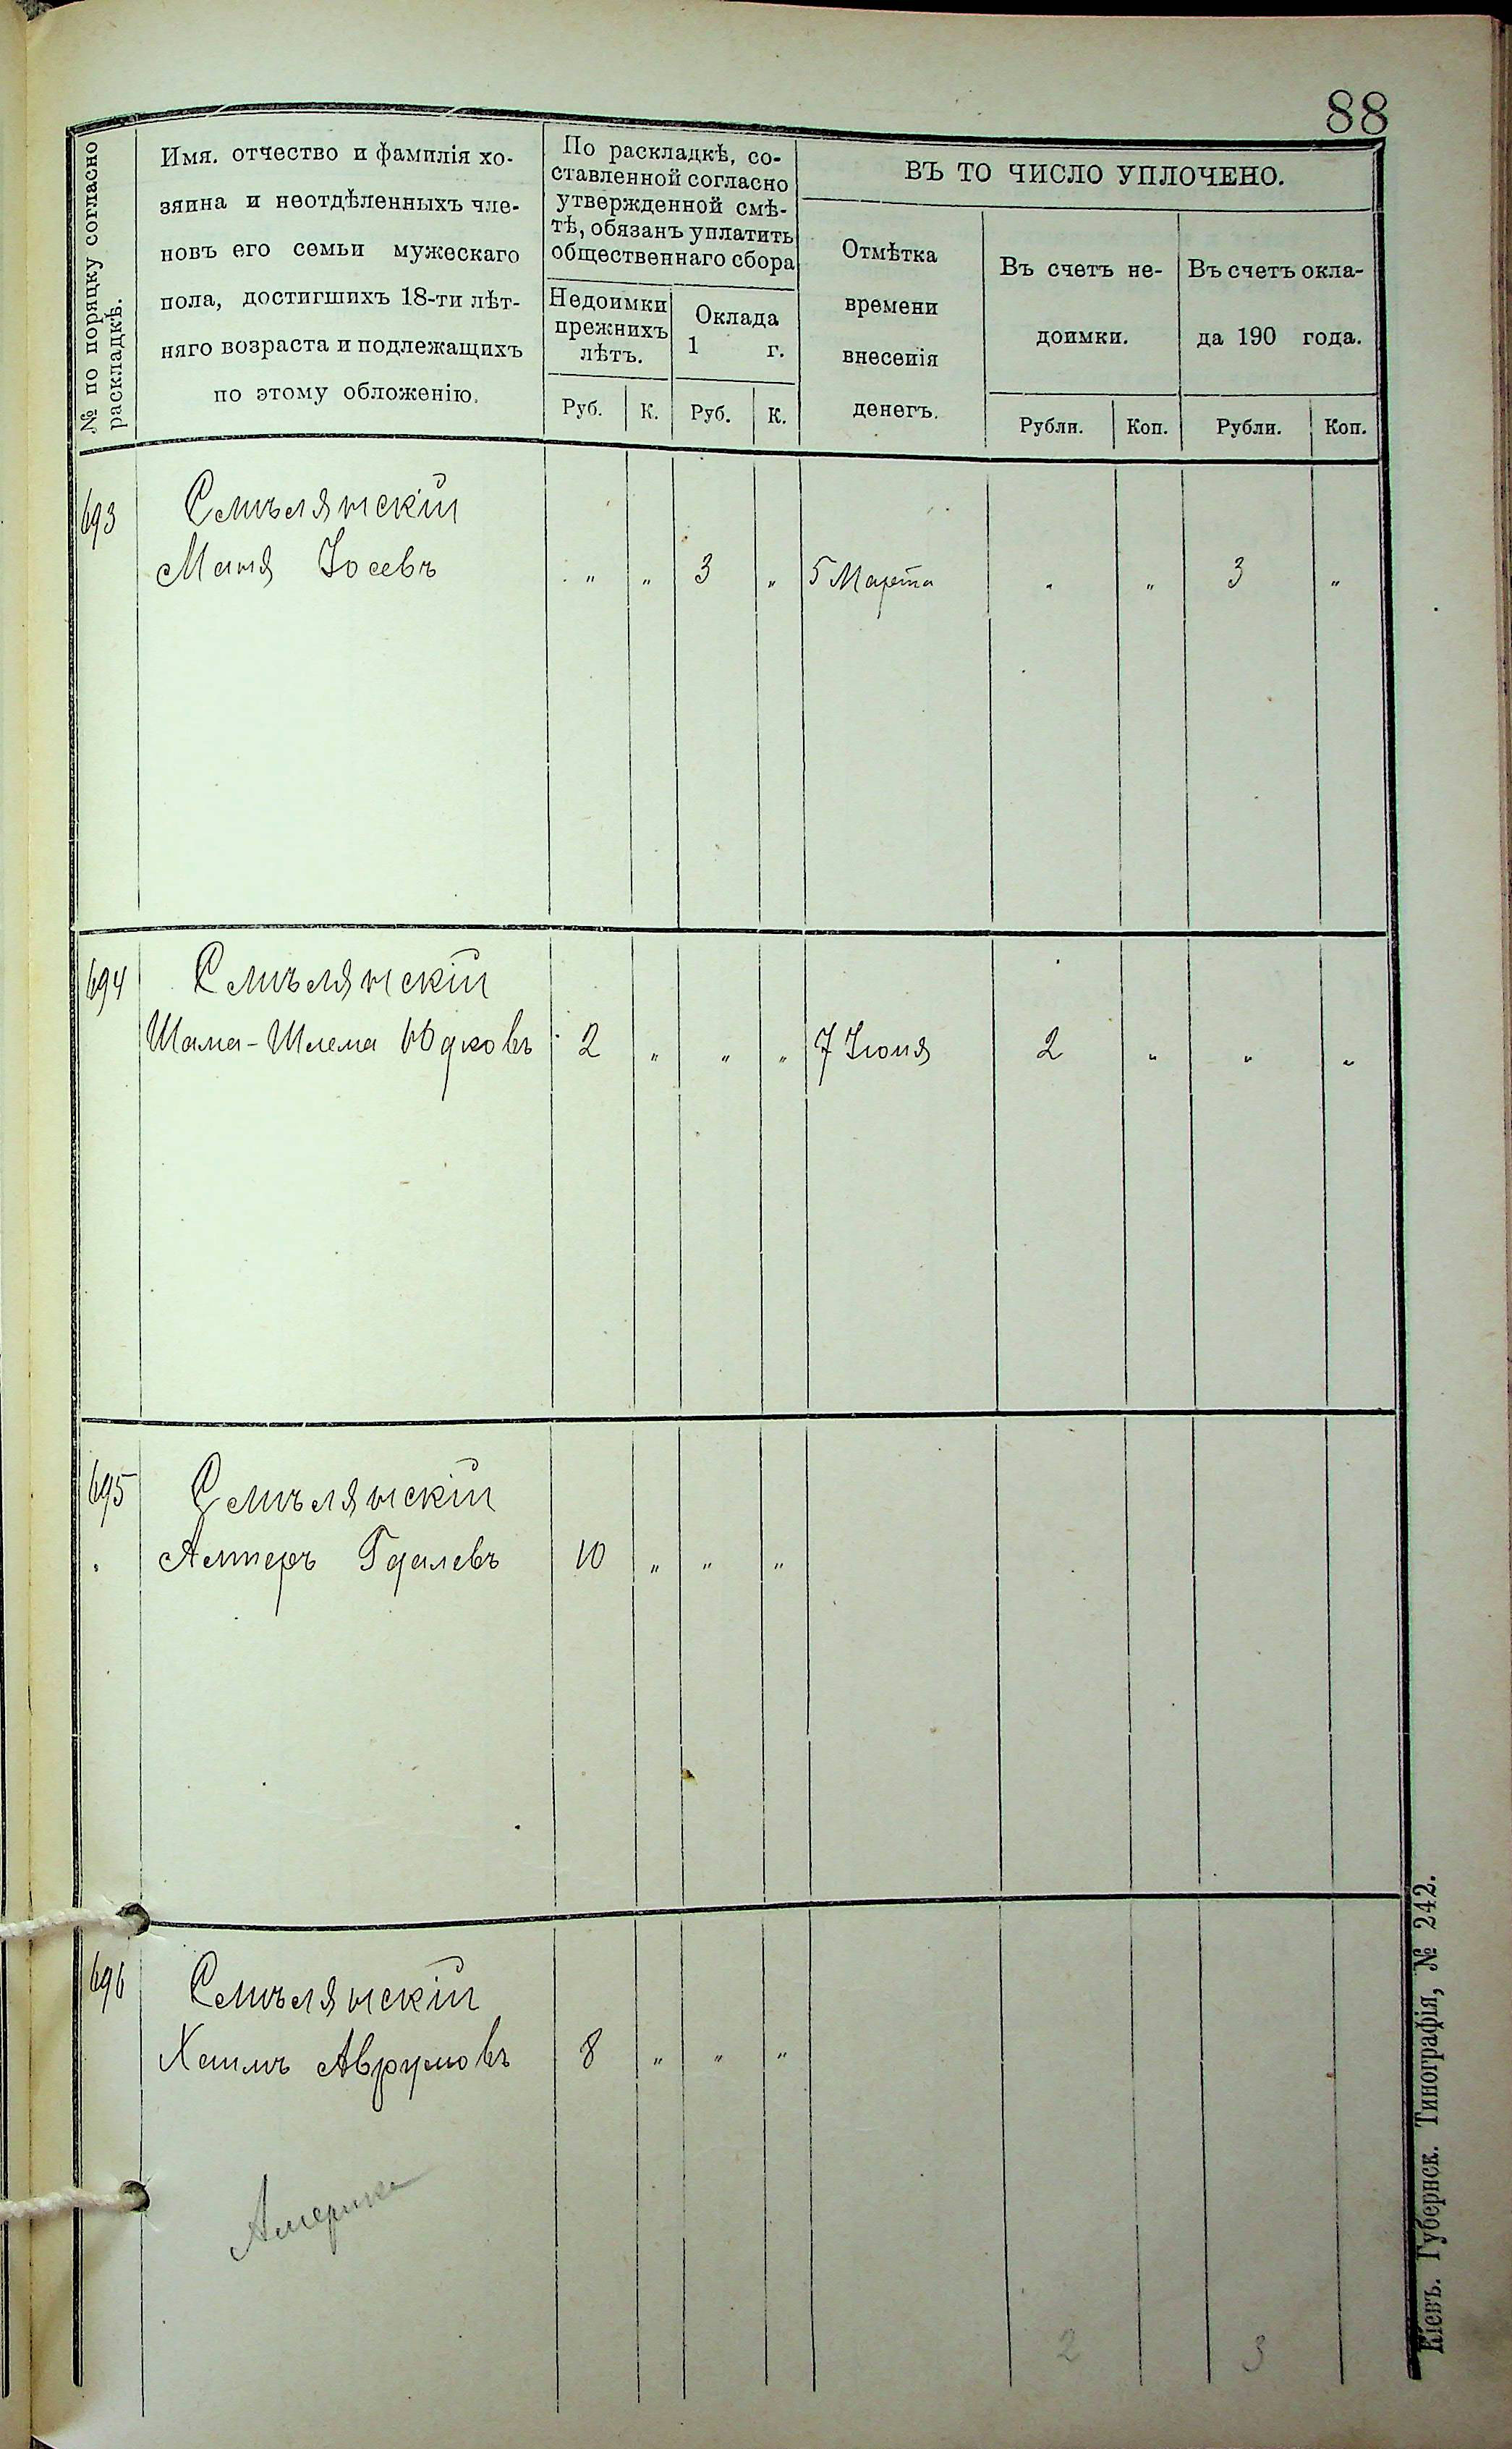 88
№ по порядку согласно
раскладкѣ.
Имя. отчество и фамилія хо-
зяина и неотдѣленныхъ чле-
новъ его семьи мужескаго
пола, достигшихъ 18-ти лѣт-
няго возраста и подлежащихъ
по этому обложенію.
По раскладкѣ, со-
ставленной согласно
утвержденной смѣ-
тѣ, обязанъ уплатить
общественнаго сбора
Недоимки
прежнихъ
лѣтъ.
Оклада
1 г.
Руб. К. Руб. К.
ВЪ ТО ЧИСЛО УПЛОЧЕНО.
Отмѣтка
времени
внесенія
денегъ.
Въ счетъ не-
доимки.
Въ счетъ окла-
да 190 года.
Рубли. Коп. Рубли. Коп.
693 Смѣлянскій
Маня Іосевъ " " 3 " 5 Марта " " 3 "
694 Смѣлянскій
Шама-Шлема 2 " " " 7 Іюня 2 " " "
695 Смѣлянскій
Алтеръ Гдалевъ 10 " " "
696 Смѣлянскій
Хаимъ Аврумовъ 8 " " "
Америка
2 3
Кіевъ. Губернск. Типографія, № 242.